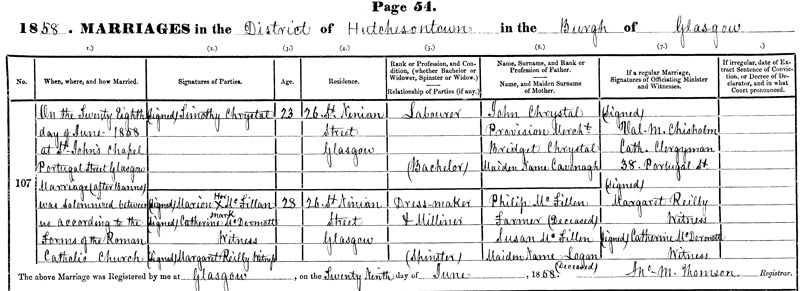 Page 54.
1858. MARRIAGES in the District of Hutchesontown in the Burgh of Glasgow
(1.) (2.) (3.) (4.) (5.) (6.) (7.)
No.
When, where, and how Married.
Signatures of Parties.
Age.
Residence.
Rank or Profession, and Condition, (whether Bachelor or Widower, Spinster or Widow.)
Relationship of Parties (if any.)
Name, Surname, and Rank or Profession of Father.
Name, and Maiden Surname of Mother.
If a regular Marriage, Signatures of Officiating Minister and Witnesses.
If irregular, date of Extract Sentence of Conviction, or Decree of Declarator, and in what Court pronounced.
107
On the Twenty Eighth
day of June 1858
at St. John's Chapel
Portugal Street Glasgow
Marriage (after Banns)
was solemnized between
us according to the
Forms of the Roman
Catholic Church
(Signed) Timothy Chrystal
(Signed) Marion Her X McFillan
mark
(Signed) Catherine McDermott
Witness
(Signed) Margaret Reilly Witness
23
28
26 St. Ninian
Street
Glasgow
26 St. Ninian
Street
Glasgow
Labourer
(Bachelor)
Dress-maker
& Milliner
(Spinster)
John Chrystal
Provision Mercht
Bridget Chrystal
Maiden Name Cavanagh
Philip McFillen
Farmer (Deceased)
Susan McFillen
Maiden Name Logan
(deceased)
(Signed)
Val. M. Chisholm
Cath. Clergyman
38. Portugal St
(Signed)
Margaret Reilly
Witness
(Signed) Catherine McDermott
Witness
The above Marriage was Registered by me at Glasgow, on the Twenty Ninth day of June, 1858. Jno. M. Thomson Registrar.